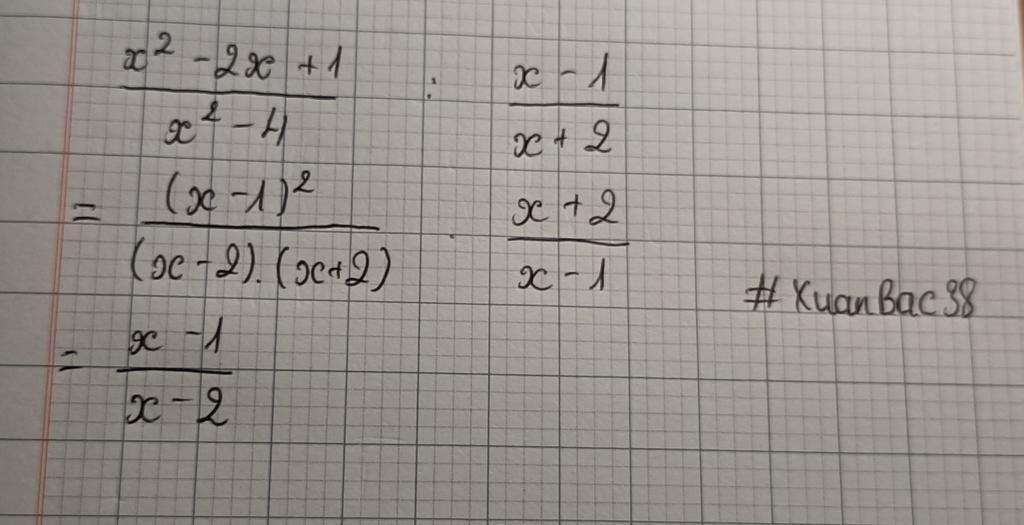 x² - 2x + 1 / x² - 4 : x - 1 / x + 2
= (x - 1)² / (x - 2).(x + 2) . x + 2 / x - 1
# XuanBac98
= x - 1 / x - 2